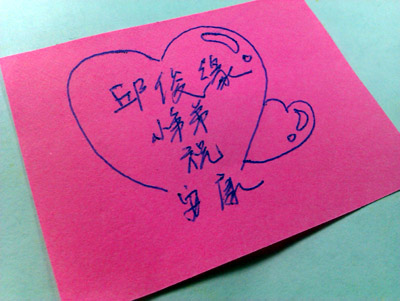 邱俊缘
小弟弟
祝
安康